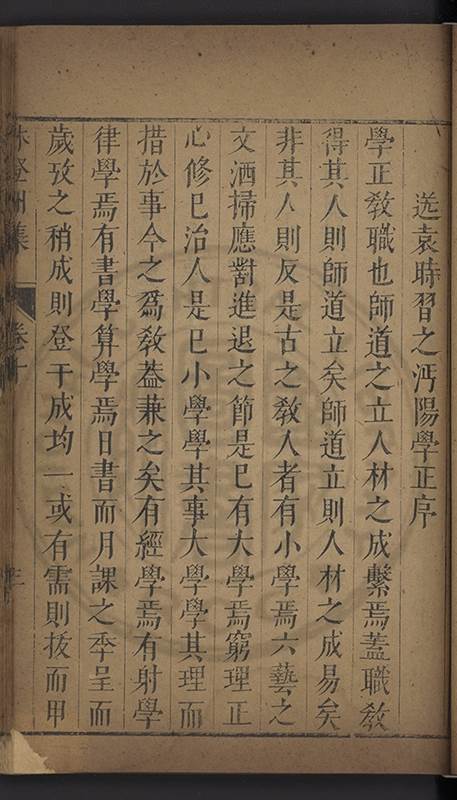 送袁時習之沔陽學正序
學正敎職也師道之立人材之成繫焉蓋職敎
得其人則師道立矣師道立則人材之成易矣
非其人則反是古之敎人者有小學焉六藝之
文洒掃應對進退之節是巳有大學焉窮理正
心修巳治人是巳小學學其事大學學其理而
措於事今之爲敎葢兼之矣有經學焉有射學
律學焉有書學算學焉日書而月課之季呈而
歲攷之稍成則登于成均一或有需則拔而甲
林登州集 卷十 三